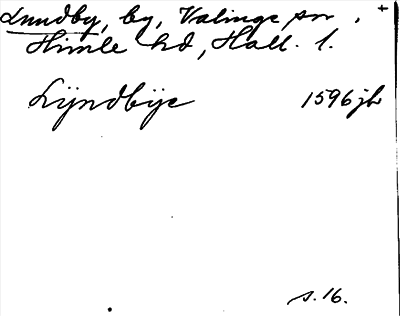 Lundby, by, Valinge sn. +
Himle hd, Hall. l.
Lÿndbÿe 1596 jb
s. 16.